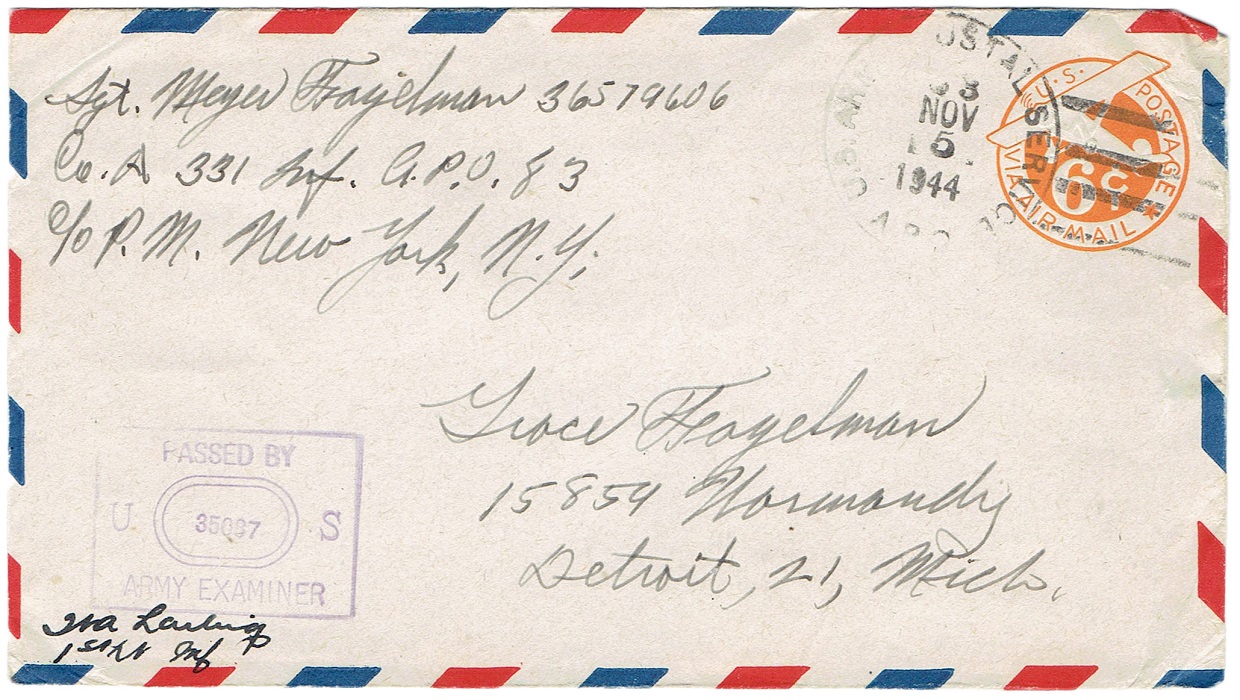 Sgt. Meyer Fagelman 36579606
Co. A 331 Inf. A.P.O. 83
c/o P.M. New York, N.Y.
U.S. ARMY POSTAL SERVICE
NOV
15
1944
A.P.O.
U.S. POSTAGE
6¢
VIA AIR MAIL
Grace Fagelman
15859 Normandy
Detroit, 21, Mich.
PASSED BY
U S
ARMY EXAMINER
1st Lt Inf